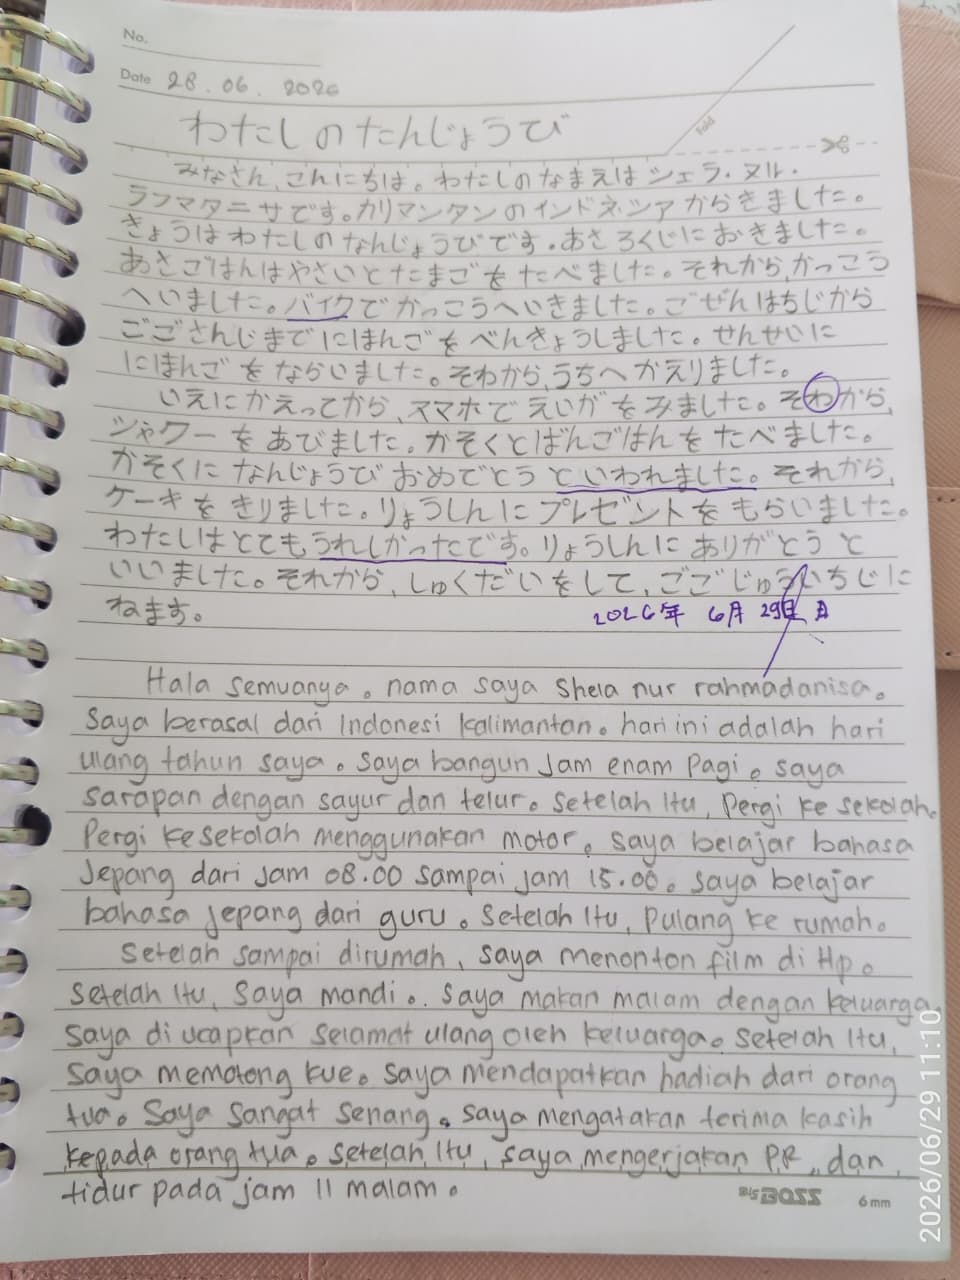 No.
Date 28. 06. 2026
わたしのたんじょうび
fold
みなさん、こんにちは。わたしのなまえは シェラ・ヌル・
ラフマダニサです。カリマンタンのインドネシアからきました。
きょうはわたしのなんじょうびです。あさろくじにおきました。
あさごはんはやさいとたまごをたべました。それから、かっこう
へいました。バイクでかっこうへいきました。ごぜんはちじから
ごごさんじまでにほんごをべんきょうしました。せんせいに
にほんごをならいました。そわから、うちへかえりました。
いえにかえってから、スマホでえいがをみました。そわから、
シャワーをあびました。かそくとばんごはんをたべました。
かそくになんじょうびおめでとうといわれました。それから、
ケーキをきりました。りょうしんにプレゼントをもらいました。
わたしはとてもうれしかったです。りょうしんにありがとうと
いいました。それから、しゅくだいをして、ごごじゅういちじに
ねます。
2026年 6月 29日 日
Hala semuanya. nama saya Shela nur rahmadanisa.
Saya berasal dari Indonesi kalimantan. hari ini adalah hari
ulang tahun saya. saya bangun jam enam pagi. saya
sarapan dengan sayur dan telur. setelah itu, pergi ke sekolah.
Pergi ke sekolah menggunakan motor. saya belajar bahasa
Jepang dari jam 08.00 sampai jam 15.00. saya belajar
bahasa jepang dari guru. setelah itu, pulang ke rumah.
Setelah sampai dirumah, saya menonton film di Hp.
setelah itu, saya mandi.. saya makan malam dengan keluarga.
saya di ucapkan selamat ulang oleh keluarga. setelah itu,
saya memotong kue. saya mendapatkan hadiah dari orang
tua. Saya sangat senang. saya mengatakan terima kasih
kepada orang tua. setelah itu, saya mengerjakan PR, dan
tidur pada jam 11 malam.
BIG BOSS 6mm
2026/06/29 11:10